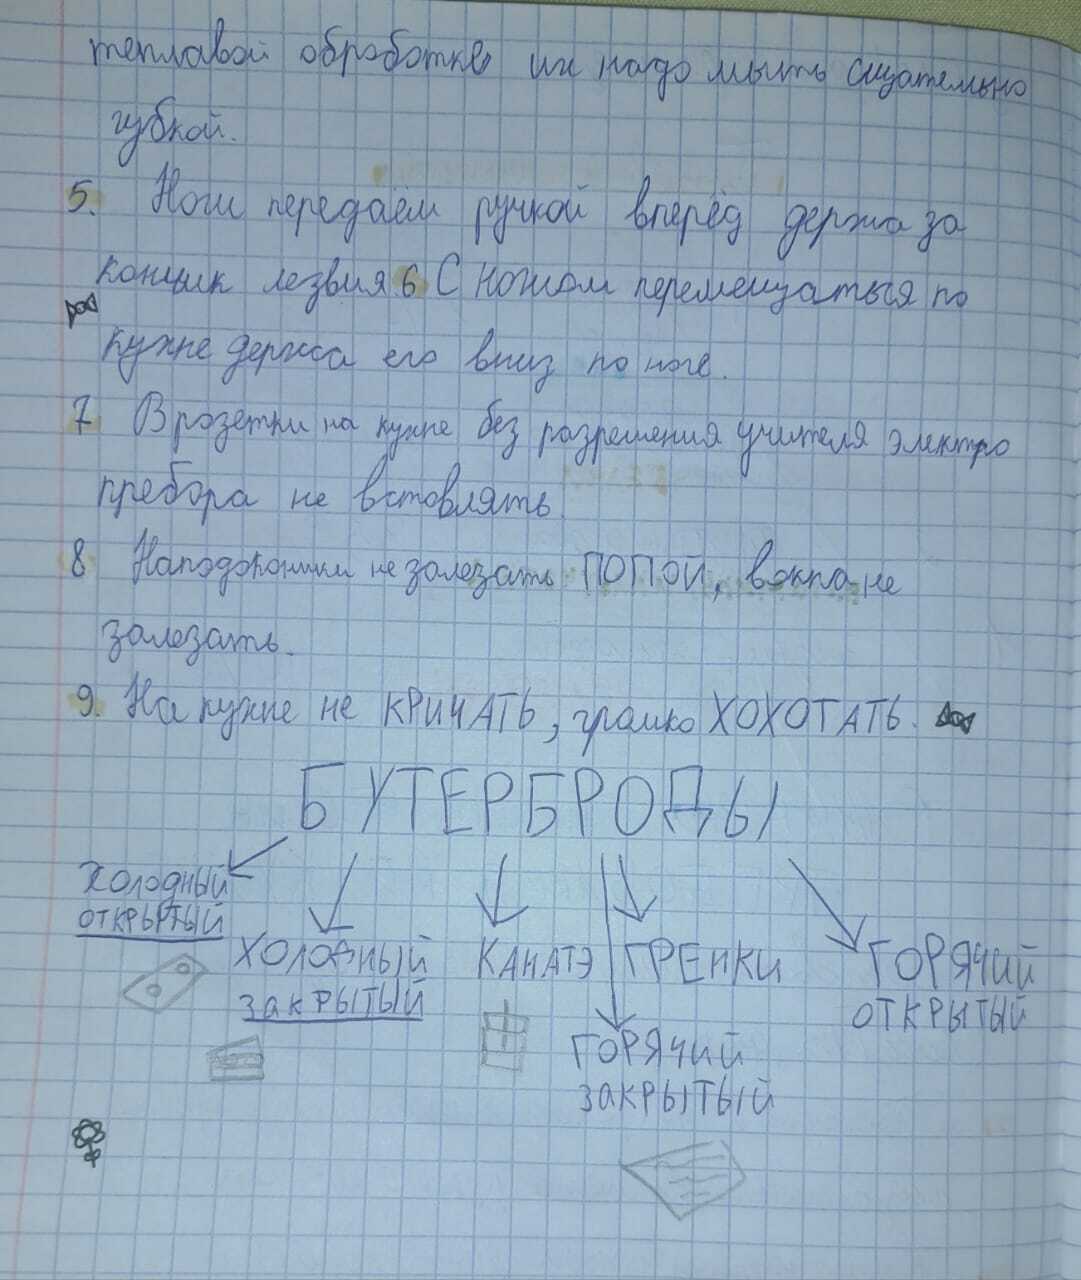 теплавой обработке их надо мыть сщательно
губкой.
5. Нош передаём ручкой вперёд держа за
кончик лезвия 6 С ножом перемещаться по
кухне держа его вниз по ноге.
7 В розетки на кухне без разрешения учителя электро
пребора не встовлять
8 Наподоконики не залезать ПОПОЙ, вокна не
залезать.
9. На кухне не КРИЧАТЬ, громко ХОХОТАТЬ.
БУТЕРБРОДЫ
Холодный
открытый
Холодный
закрытый
КАНАТЭ
ГРЕНКИ
ГОРЯЧИЙ
ОТКРЫТЫЙ
ГОРЯЧИЙ
ЗАКРЫТЫЙ